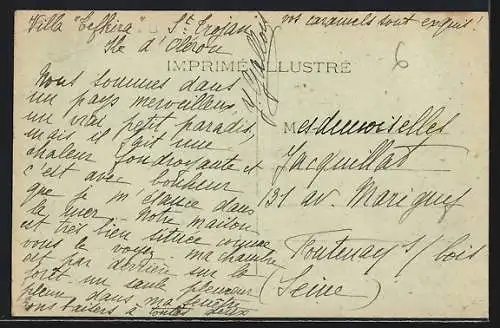 Villa "Cefkira" St Trojan
Ile d'Oléron
vos caramels sont exquis!
IMPRIMÉ ILLUSTRÉ
6
Nous sommes dans
un pays merveilleux,
un vrai petit paradis,
mais il fait une
chaleur foudroyante et
c'est avec bonheur
que je m'élance dans
la mer. Notre maison
est très bien située comme
vous le voyez ma chambre
est par derrière sur la
forêt. un saule pleureur
pleure dans ma fenêtre
bons baisers à toutes deux
Mesdemoiselles
Jacquillat
131 av. Marigny
Fontenay s/ bois
(Seine)